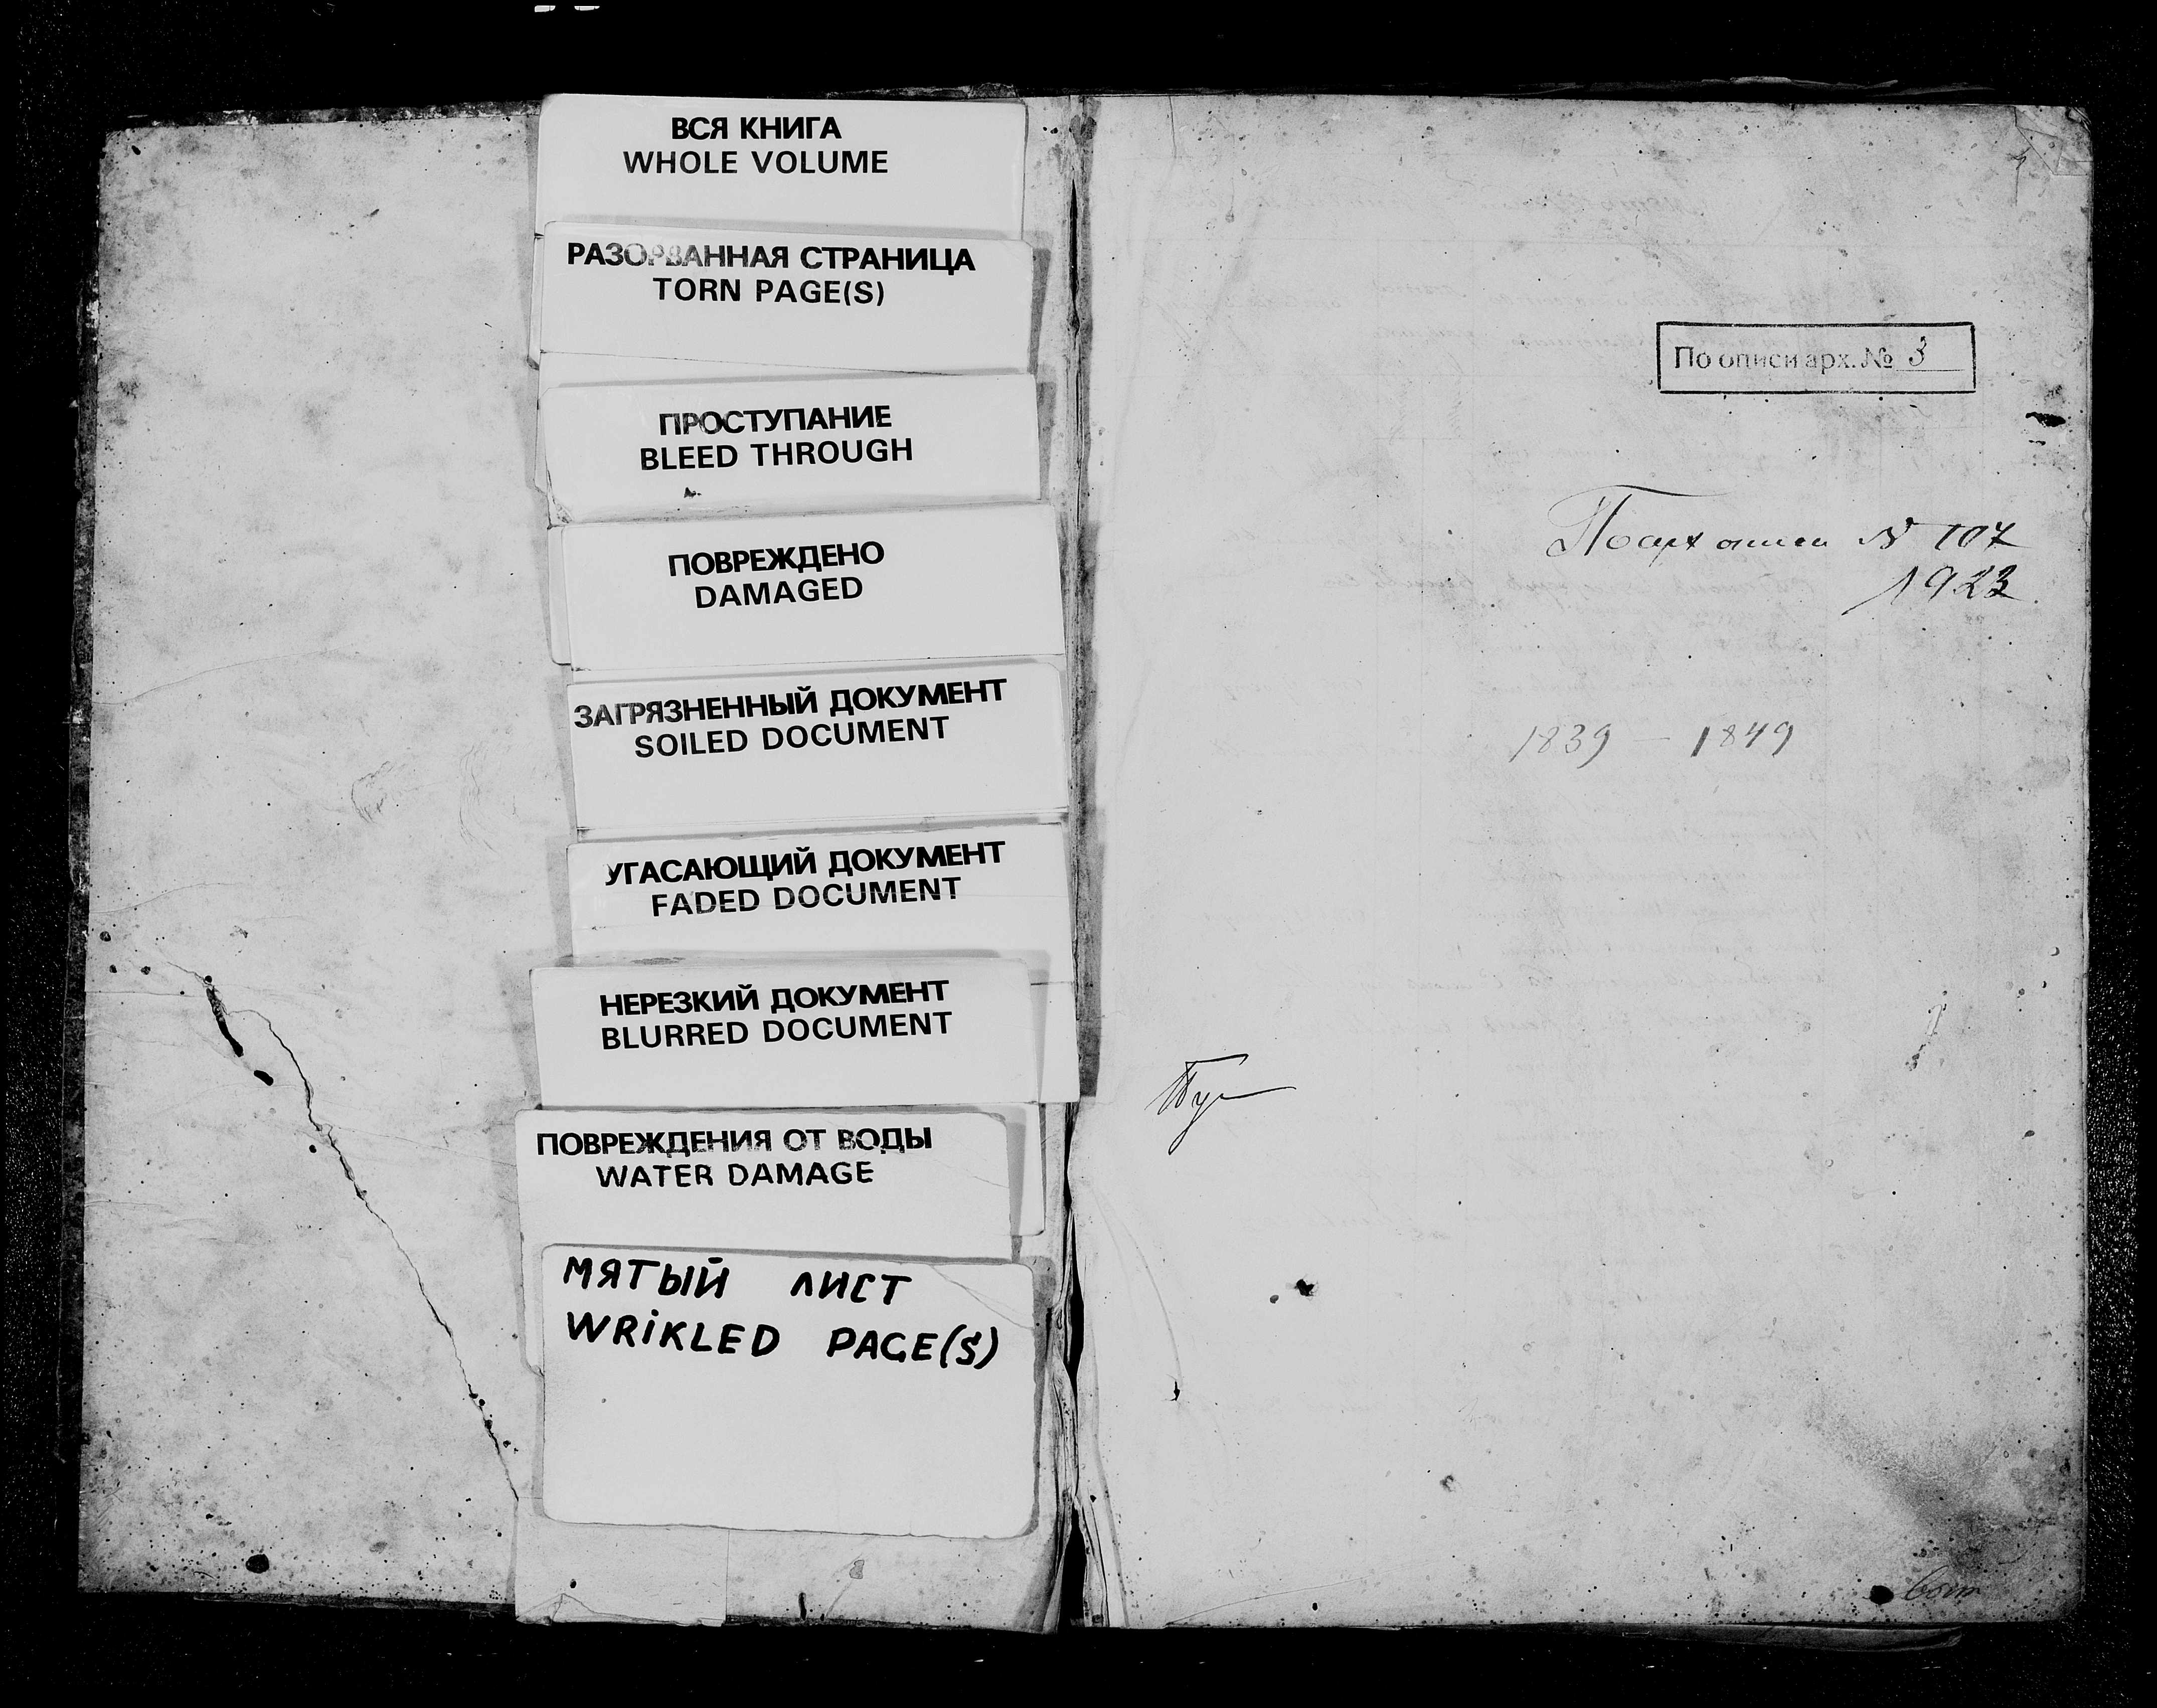 ВСЯ КНИГА
WHOLE VOLUME
РАЗОРВАННАЯ СТРАНИЦА
TORN PAGE(S)
ПРОСТУПАНИЕ
BLEED THROUGH
ПОВРЕЖДЕНО
DAMAGED
ЗАГРЯЗНЕННЫЙ ДОКУМЕНТ
SOILED DOCUMENT
УГАСАЮЩИЙ ДОКУМЕНТ
FADED DOCUMENT
НЕРЕЗКИЙ ДОКУМЕНТ
BLURRED DOCUMENT
ПОВРЕЖДЕНИЯ ОТ ВОДЫ
WATER DAMAGE
МЯТЫЙ ЛИСТ
WRIKLED PAGE(S)
По описи арх. № 3
По арх описи № 107
1923
1839 — 1849